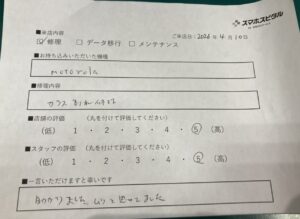 スマホスピタル
■来店内容
ご来店日：2026年 4月 10日
☑ 修理 □ データ移行 □ メンテナンス
■お持ち込みいただいた機種
motorola
■修理内容
ガラス
■店舗の評価 （丸を付けて評価してください）
（低） 1 ・ 2 ・ 3 ・ 4 ・ 5 （高）
■スタッフの評価 （丸を付けて評価してください）
（低） 1 ・ 2 ・ 3 ・ 4 ・ 5 （高）
■一言いただけますと幸いです
助かりました ムリと思ってました